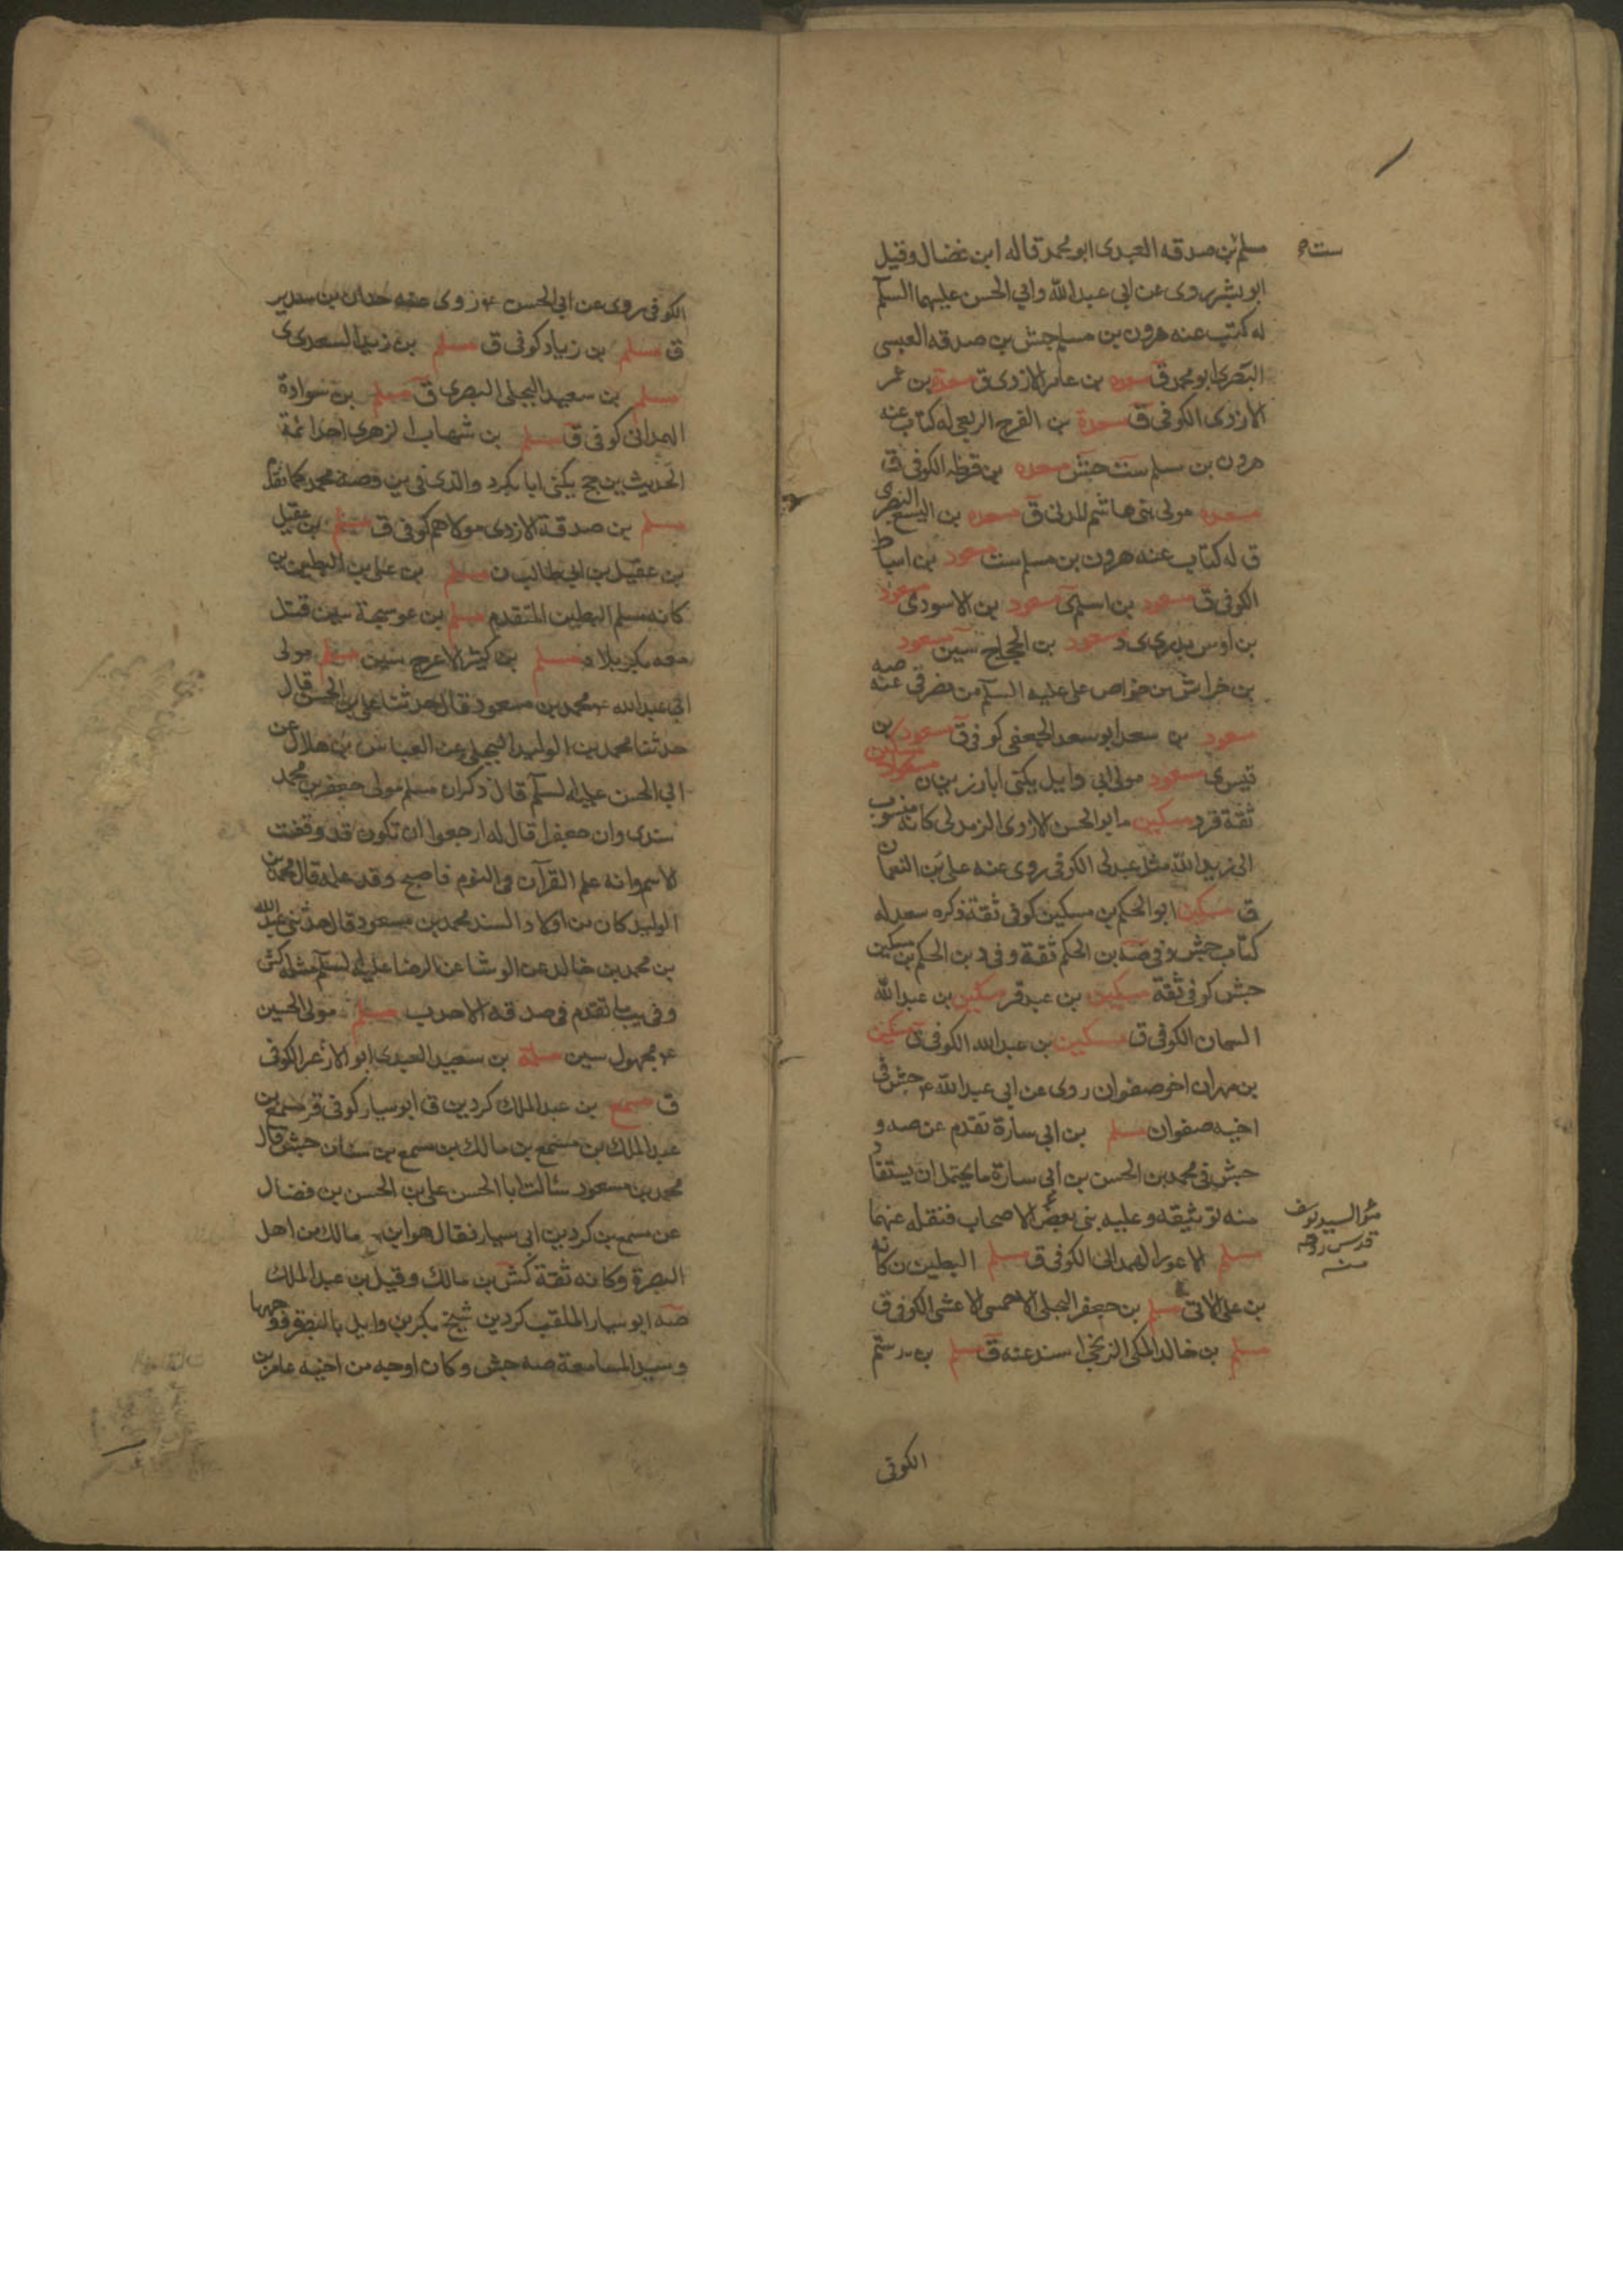 مسلم بن صدقه العبدى ابو محمد قاله ابن فضال وقيل
ست ج
ابو بشر روى عن ابى عبد الله وابي الحسن عليهما السلم
له كتب عنه هرون بن مسلم جش بن صدقه العبسى
البصرى ابو محمد ق مسعده بن عامر الازدى ق مسعدة بن عمر
الازدى الكوفى ق مسعدة بن الفرج الربعى له كتاب عنه
هرون بن مسلم ست جش مسعده بن قرظه الكوفى ق
مسعده مولى بنى هاشم المدنى ق مسعده بن اليسع البصرى
ق له كتاب عنه هرون بن مسلم ست مسعود بن اسباط
الكوفى ق مسعود بن اسلم ى مسعود بن الاسود ى مسعود
بن اوس بدرى ى د مسعود بن الحجاج سين مسعود
بن خراش من خواص على عليه السلم من مضر قى عنه صه
مسعود بن سعد ابو سعد الجعفى كوفى ق مسعود بن
قيس ى مسعود مولى ابى وايل يكنى ابا رزين ن
ثقة قر د مسكين ابو الحسن الازدى الزيدلى كانه منسوب
الى زيد الله مثل عبدلى الكوفى روى عنه على بن النعمان
ق مسكين ابو الحكم بن مسكين كوفى ثقة ذكره سعد له
كتاب جش وفى صه بن الحكم ثقة وفى د بن الحكم بن مسكين
جش كوفى ثقة مسكين بن عبد قر مسكين بن عبد الله
السمان الكوفى ق مسكين بن عبد الله الكوفى ق مسكين
بن مهران اخو صفوان روى عن ابى عبد الله ع جش فى
اخيه صفوان مسلم بن ابى سارة تقدم عن صه و
جش فى محمد بن الحسن بن ابى سارة ما يحتمل ان يستفاد
منه توثيقه وعليه بنى بعض الاصحاب فنقله عنهما
هو السيد يوسف
قدس روحه
منه
مسلم الاعور الهمدانى الكوفى ق مسلم البطين ن كانه
بن على الاتى مسلم بن جعفر البجلى الاحمسى الاعشى الكوفى ق
مسلم بن خالد المكى الزنجى اسند عنه ق مسلم بن رستم
الكوفى
الكوفى روى عن ابى الحسن ع روى عنه حنان بن سدير
ق مسلم بن زياد كوفى ق مسلم بن زيد السعدى ى
مسلم بن سعيد البجلى البصرى ق مسلم بن سوادة
الهمدانى كوفى ق مسلم بن شهاب الزهرى احد ائمة
الحديث ين جخ يكنى ابا بكر د والذى فى ين وصه محمد كما تقدم
مسلم بن صدقة الازدى مولاهم كوفى ق مسلم بن عقيل
بن عقيل بن ابى طالب ن مسلم بن على بن البطين ين
كانه مسلم البطين المتقدم مسلم بن عوسجة سين قتل
معه بكربلا د مسلم بن كثير الاعرج سين مسلم مولى
ابى عبد الله ع محمد بن مسعود قال حدثنا على بن الحسن قال
حدثنا محمد بن الوليد البجلى عن العباس بن هلال عن
ابى الحسن عليه السلم قال ذكر ان مسلم مولى جعفر بن محمد
سندى وان جعفرا قال له ارجعوا ان تكون قد وفقت
الاسم وانه علم القرآن فى النوم فاصبح وقد علمه قال محمد بن
الوليد كان من اولاد السند محمد بن مسعود قال حدثنى عبد الله
بن محمد بن خالد عن الوشا عن الرضا عليه السلم مثله كش
وفى يب ما تقدم فى صدقه الاحدب مسلم مولى الحسين
ع مجهول سين مسلمة بن سعيد العبدى ابو الازعر الكوفى
ق مسمع بن عبد الملك كردين ق ابو سيار كوفى قر مسمع بن
عبد الملك بن مسمع بن مالك بن مسمع بن سنان جش قال
محمد بن مسعود سئالت ابا الحسن على بن الحسن بن فضال
عن مسمع بن كردين ابى سيار فقال هو ابن مالك من اهل
البصرة وكانه ثقة كش بن مالك وقيل بن عبد الملك
صه ابو سيار الملقب كردين شيخ بكر بن وايل بالبصرة ووجهها
وسيد المسامعة صه جش وكان اوجه من اخيه عامر بن